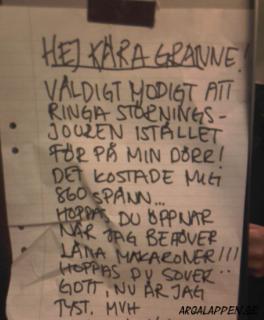 HEJ KÄRA GRANNE!
VÄLDIGT MODIGT ATT
RINGA STÖRNINGS-
JOUREN ISTÄLLET
FÖR PÅ MIN DÖRR!
DET KOSTADE MIG
860 SPÄNN...
HOPPAS DU ÖPPNAR
NÄR JAG BEHÖVER
LÅNA MAKARONER!!!
HOPPAS DU SOVER
GOTT, NU ÄR JAG
TYST. MVH
ARGALAPPEN.SE